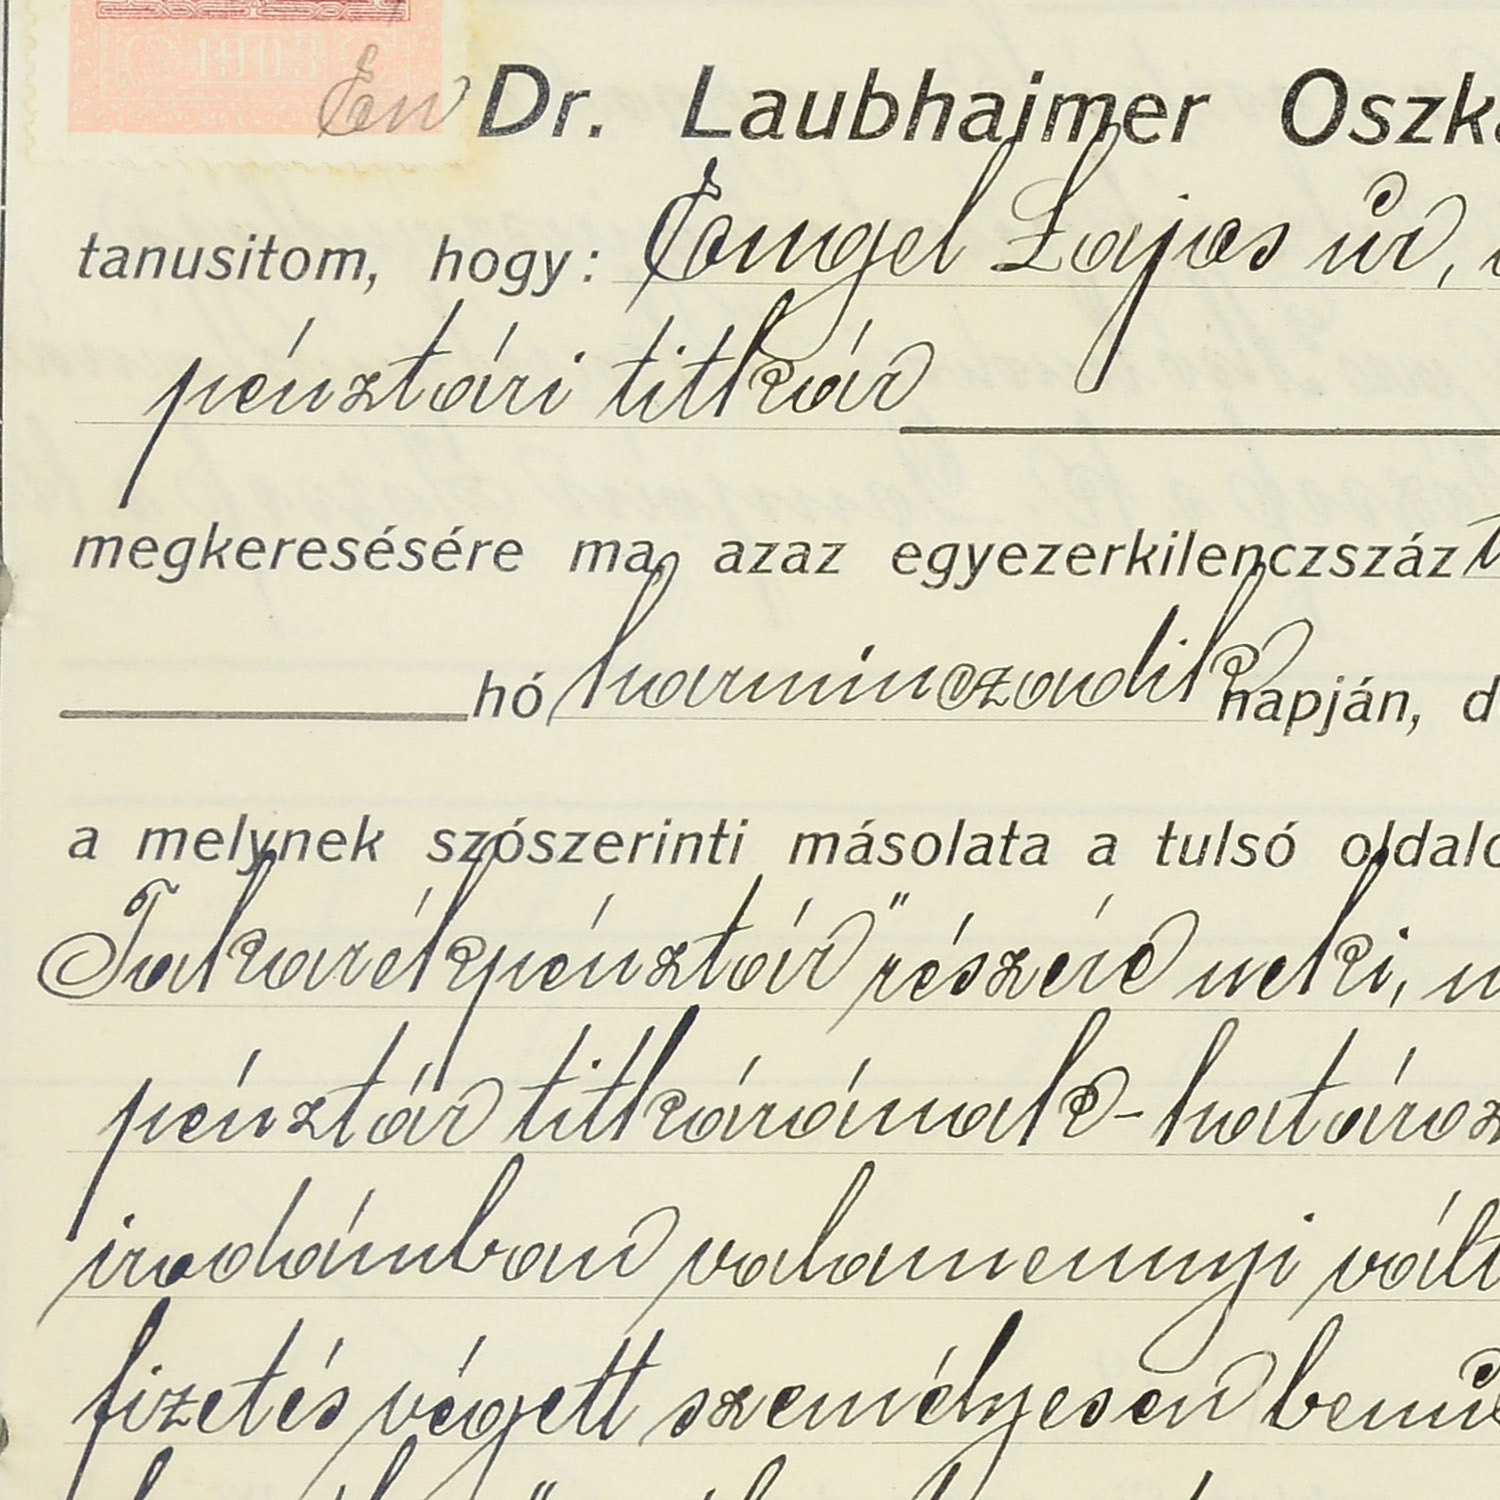 1903
Én Dr. Laubhaimer Oszk
tanusitom, hogy: Engel Lajos úr,
pénztári titkár
megkeresésére ma, azaz egyezerkilenczszáz
hó harminczadik napján, d
a melynek szószerinti másolata a tulsó oldalo
Takarékpénztár" részére neki,
pénztár titkárának - határoz
irodámban valamennyi vált
fizetés végett személyesen bemu